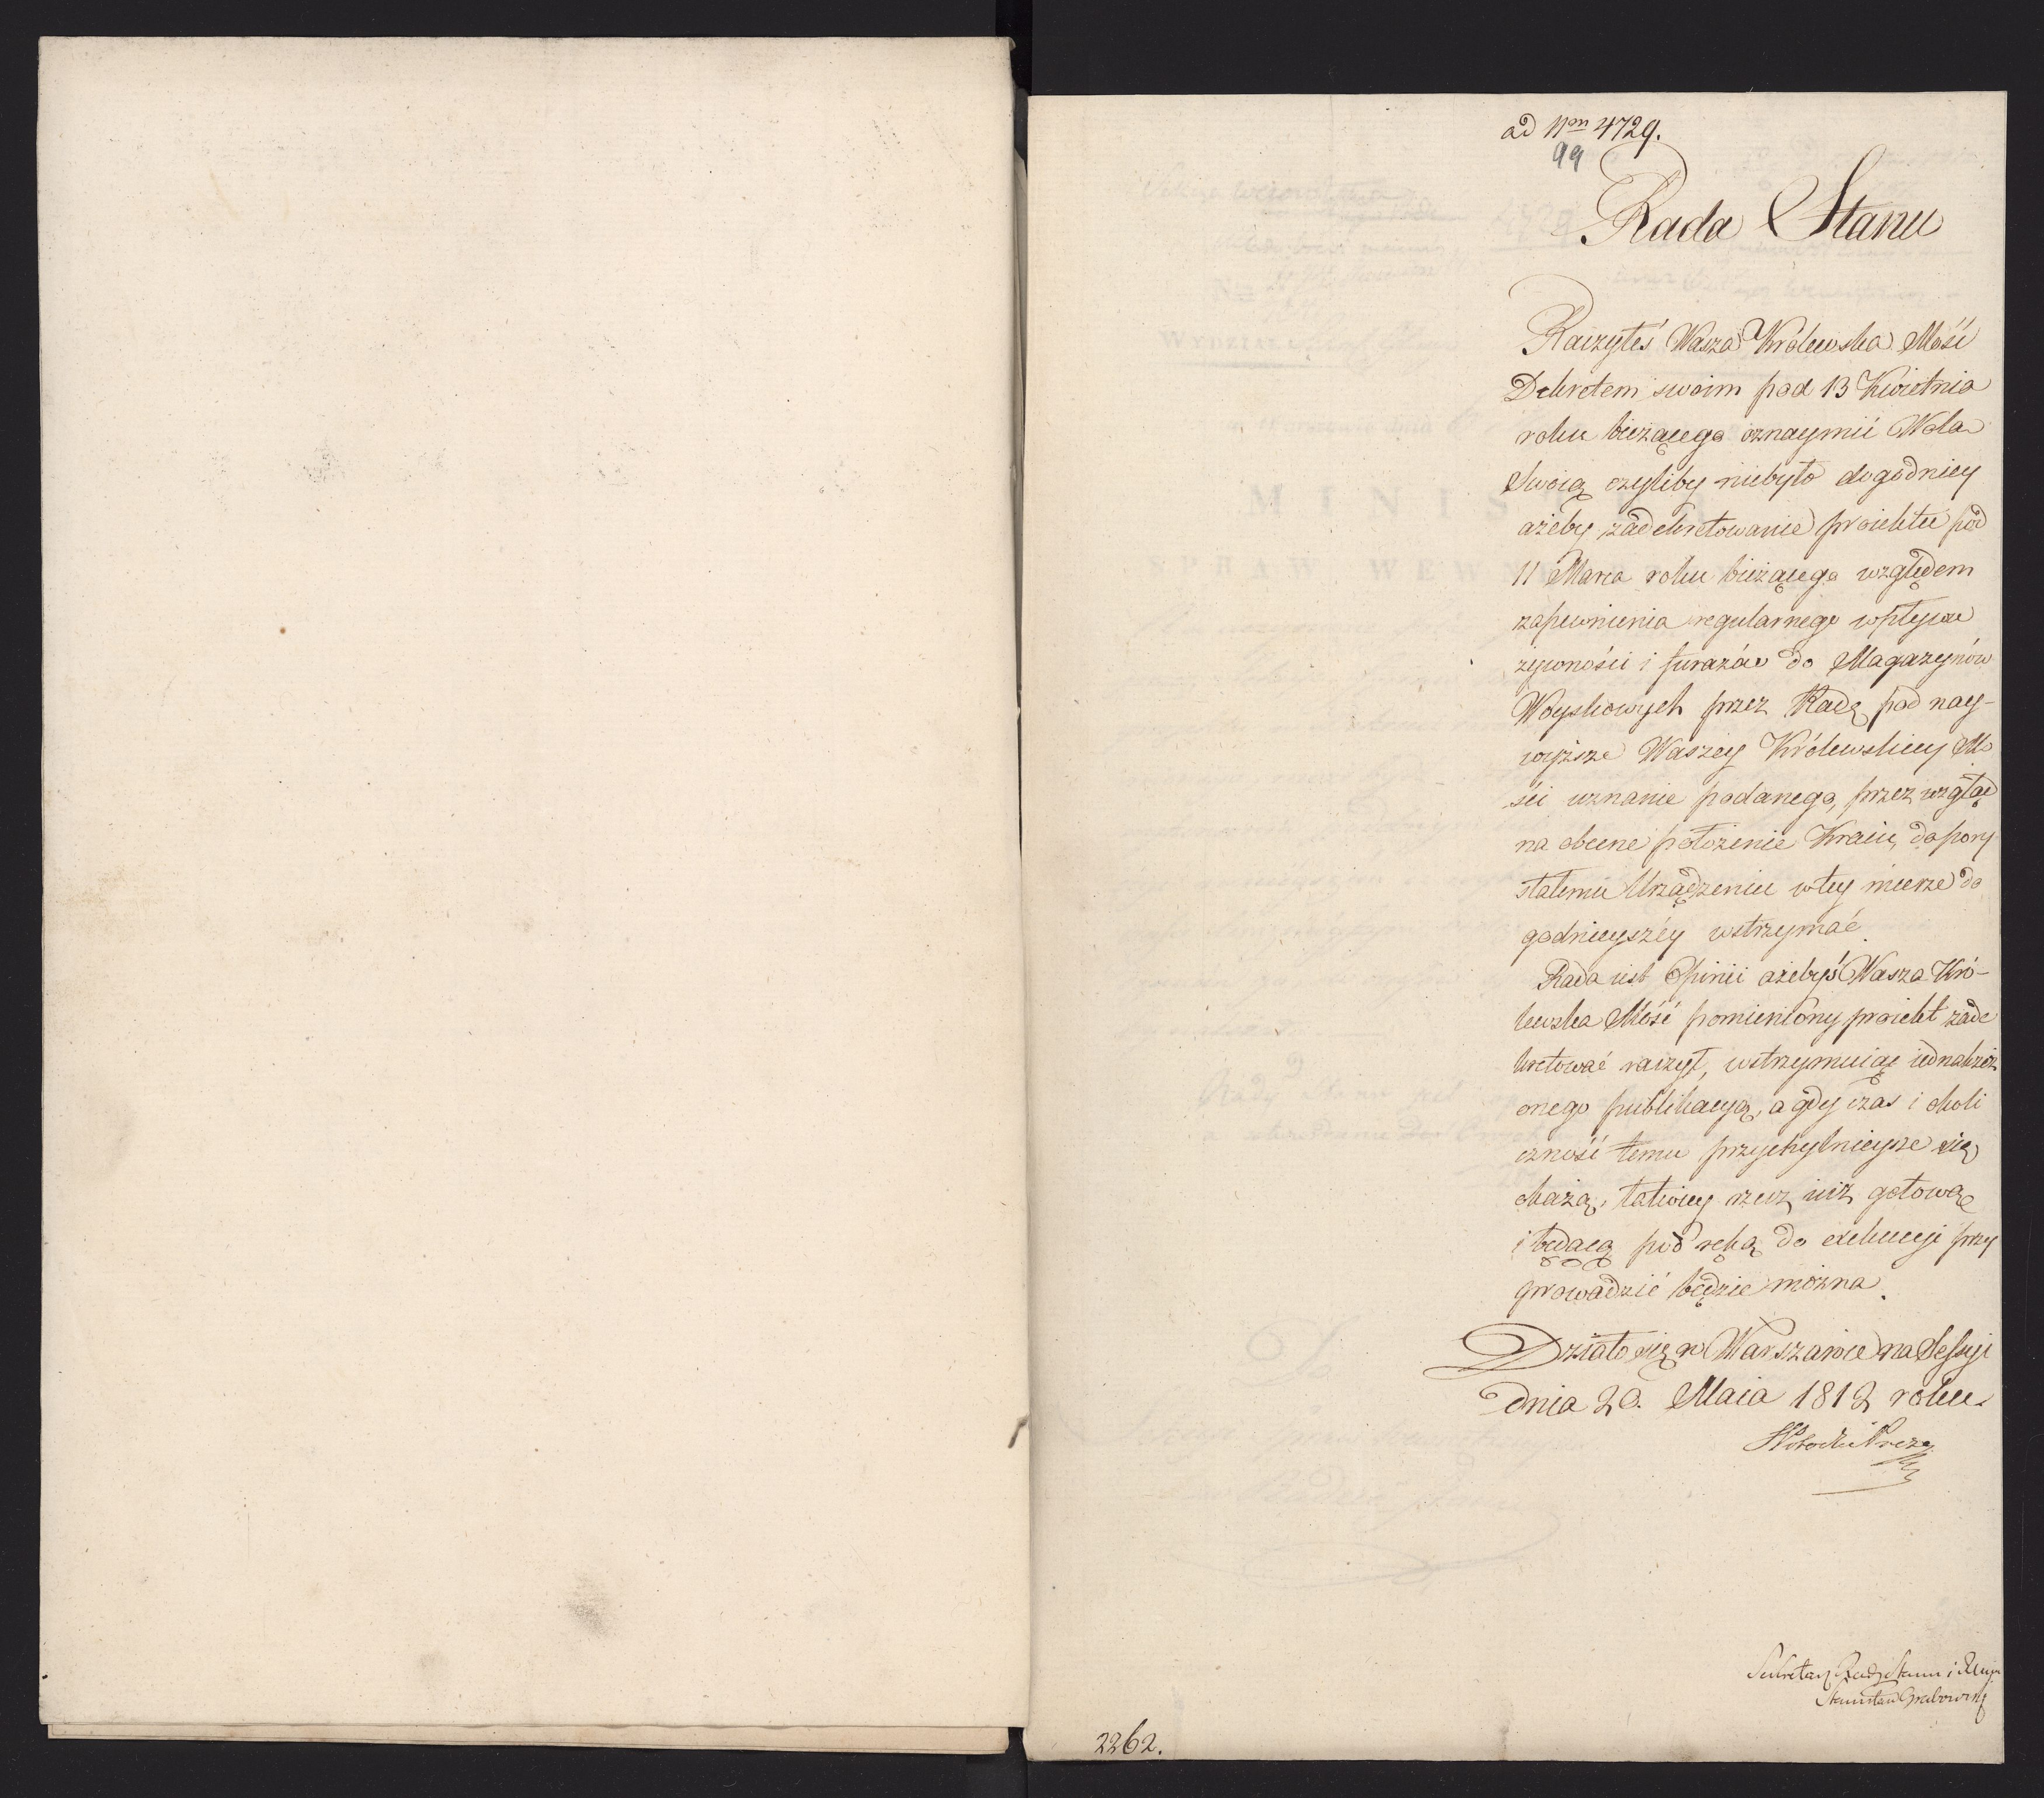 ad Nrm 4729.
99
Rada Stanu
Raczyłeś Wasza Królewska Mość
Dekretem swoim pod 13 Kwietnia
roku bieżącego oznaymić Wolą
Swoią czyliby niebyło dogodniey
ażeby zadekretowanie proiektu pod
11 Marca roku bieżącego względem
zapewnienia regularnego wpływu
żywności i furażów do Magazynów
Woyskowych przez Radę pod nay-
wyższe Waszey Królewskiey Mo
ści uznanie podanego, przez wzgląd
na obecne położenie Kraiu, do pory
stałemu Urządzeniu w tey mierze do
godnieyszéy wstrzymać.
Rada iest Opinii ażebyś Wasza Kró-
lewska Mość pomieniony proiekt zade
kretować raczył, wstrzymuiąc iednakże
onego publikacyą, a gdy czas i okoli
czność temu przychylnieysze się
okażą, łatwiey rzecz iuż gotową
i będącą pod ręką do exekucyi przy
prowadzić będzie można.
Działo się w Warszawie na Sessyi
dnia 20. Maia 1812 roku.
Potocki Prezes
Sekretarz Rady Stanu i
Stanisław Grabowski
2262.